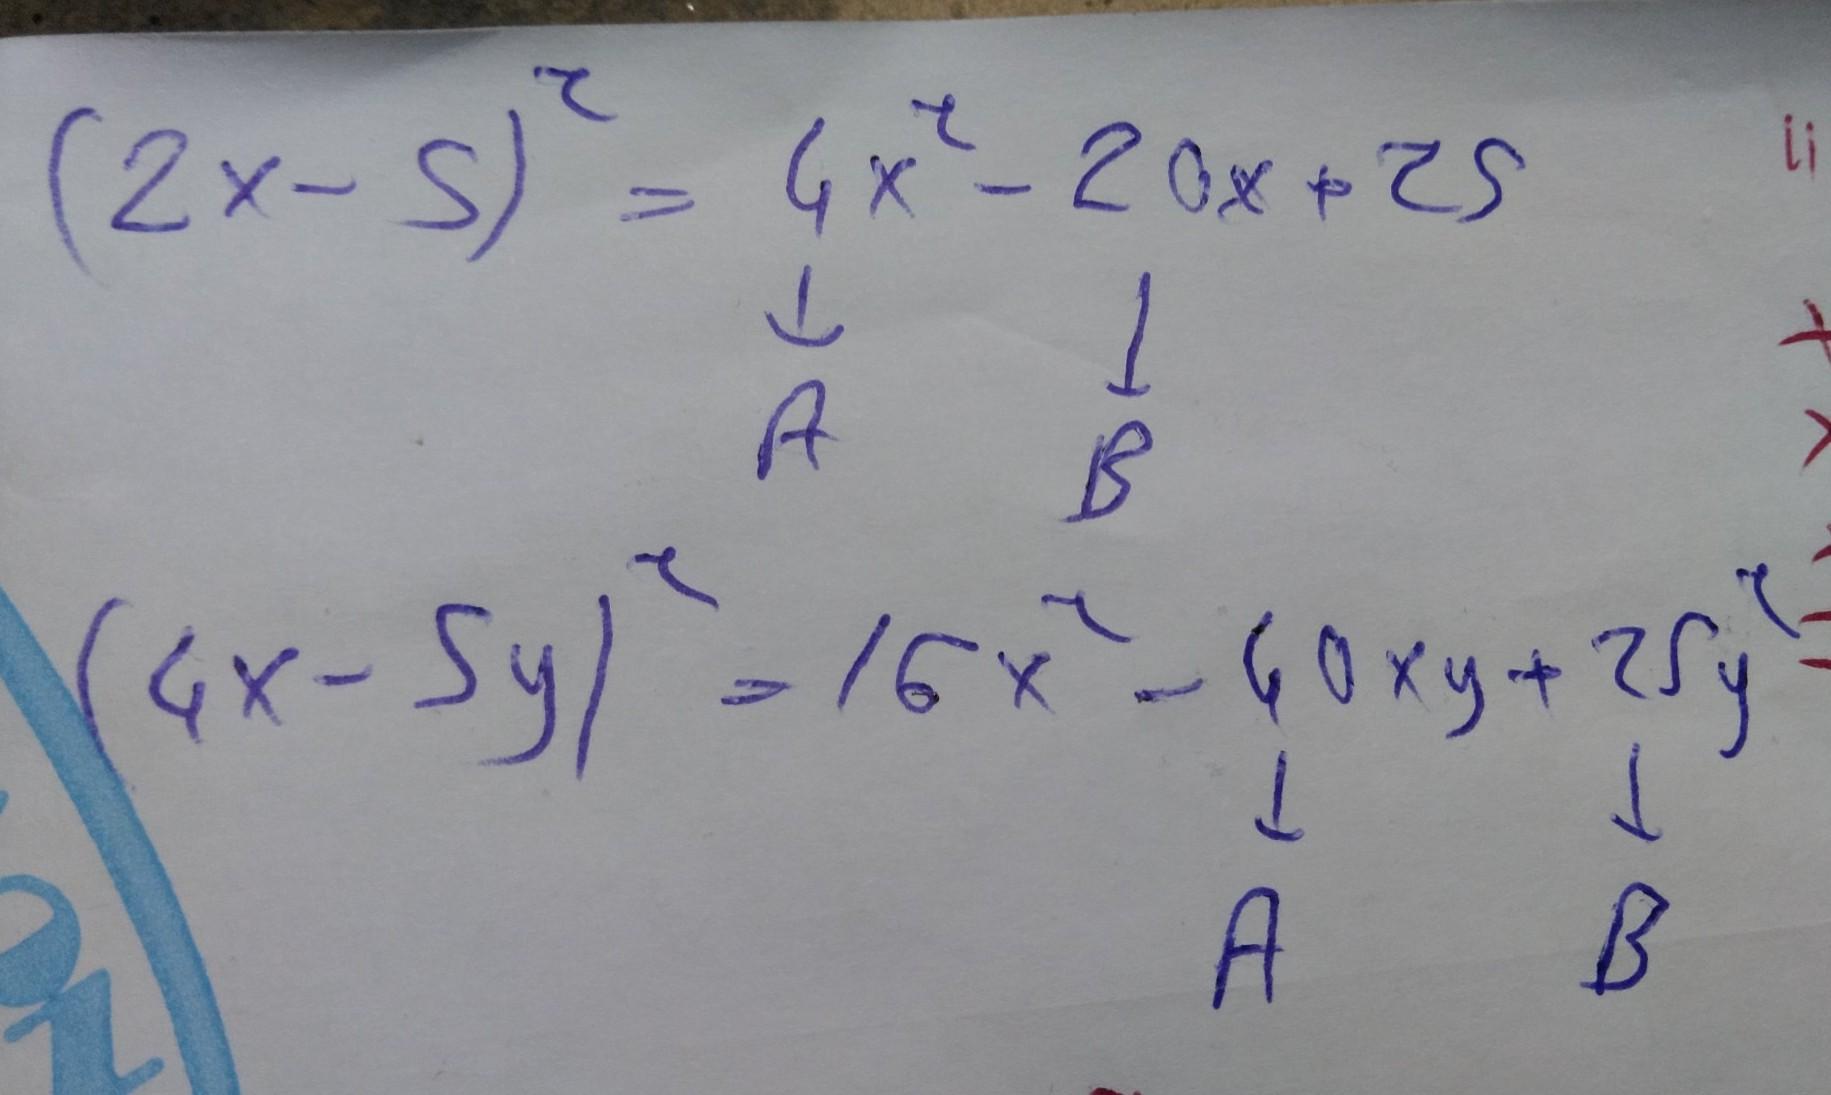 (2x-5)² = 4x² - 20x + 25
↓ ↓
A B
(4x-5y)² = 16x² - 40xy + 25y²
↓ ↓
A B